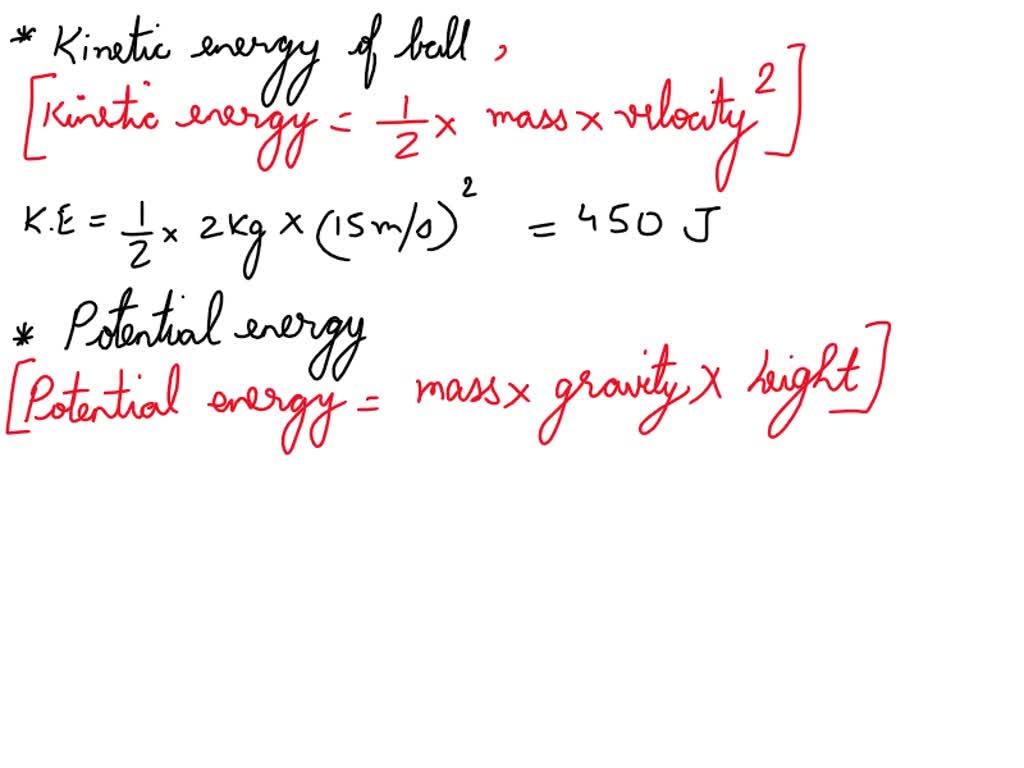 * Kinetic energy of ball,
[Kinetic energy = 1/2 × mass × velocity²]
K.E = 1/2 × 2 Kg × (15 m/s)² = 450 J
* Potential energy
[Potential energy = mass × gravity × height]